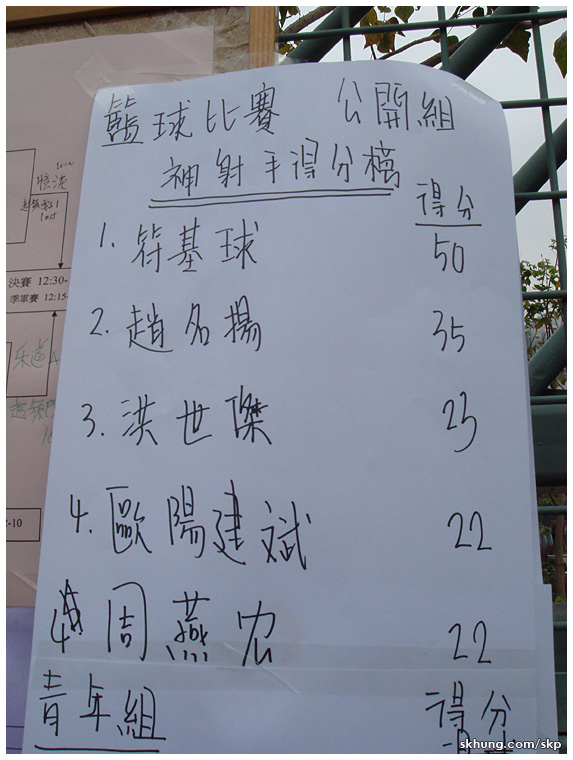 籃球比賽 公開組
神射手得分榜
得分
1. 符基球 50
2. 趙名揚 35
3. 洪世傑 23
4. 歐陽建斌 22
4 周燕宏 22
青年組 得分
決賽 12:30-
季軍賽 12:15-
2-10
skhung.com/skp